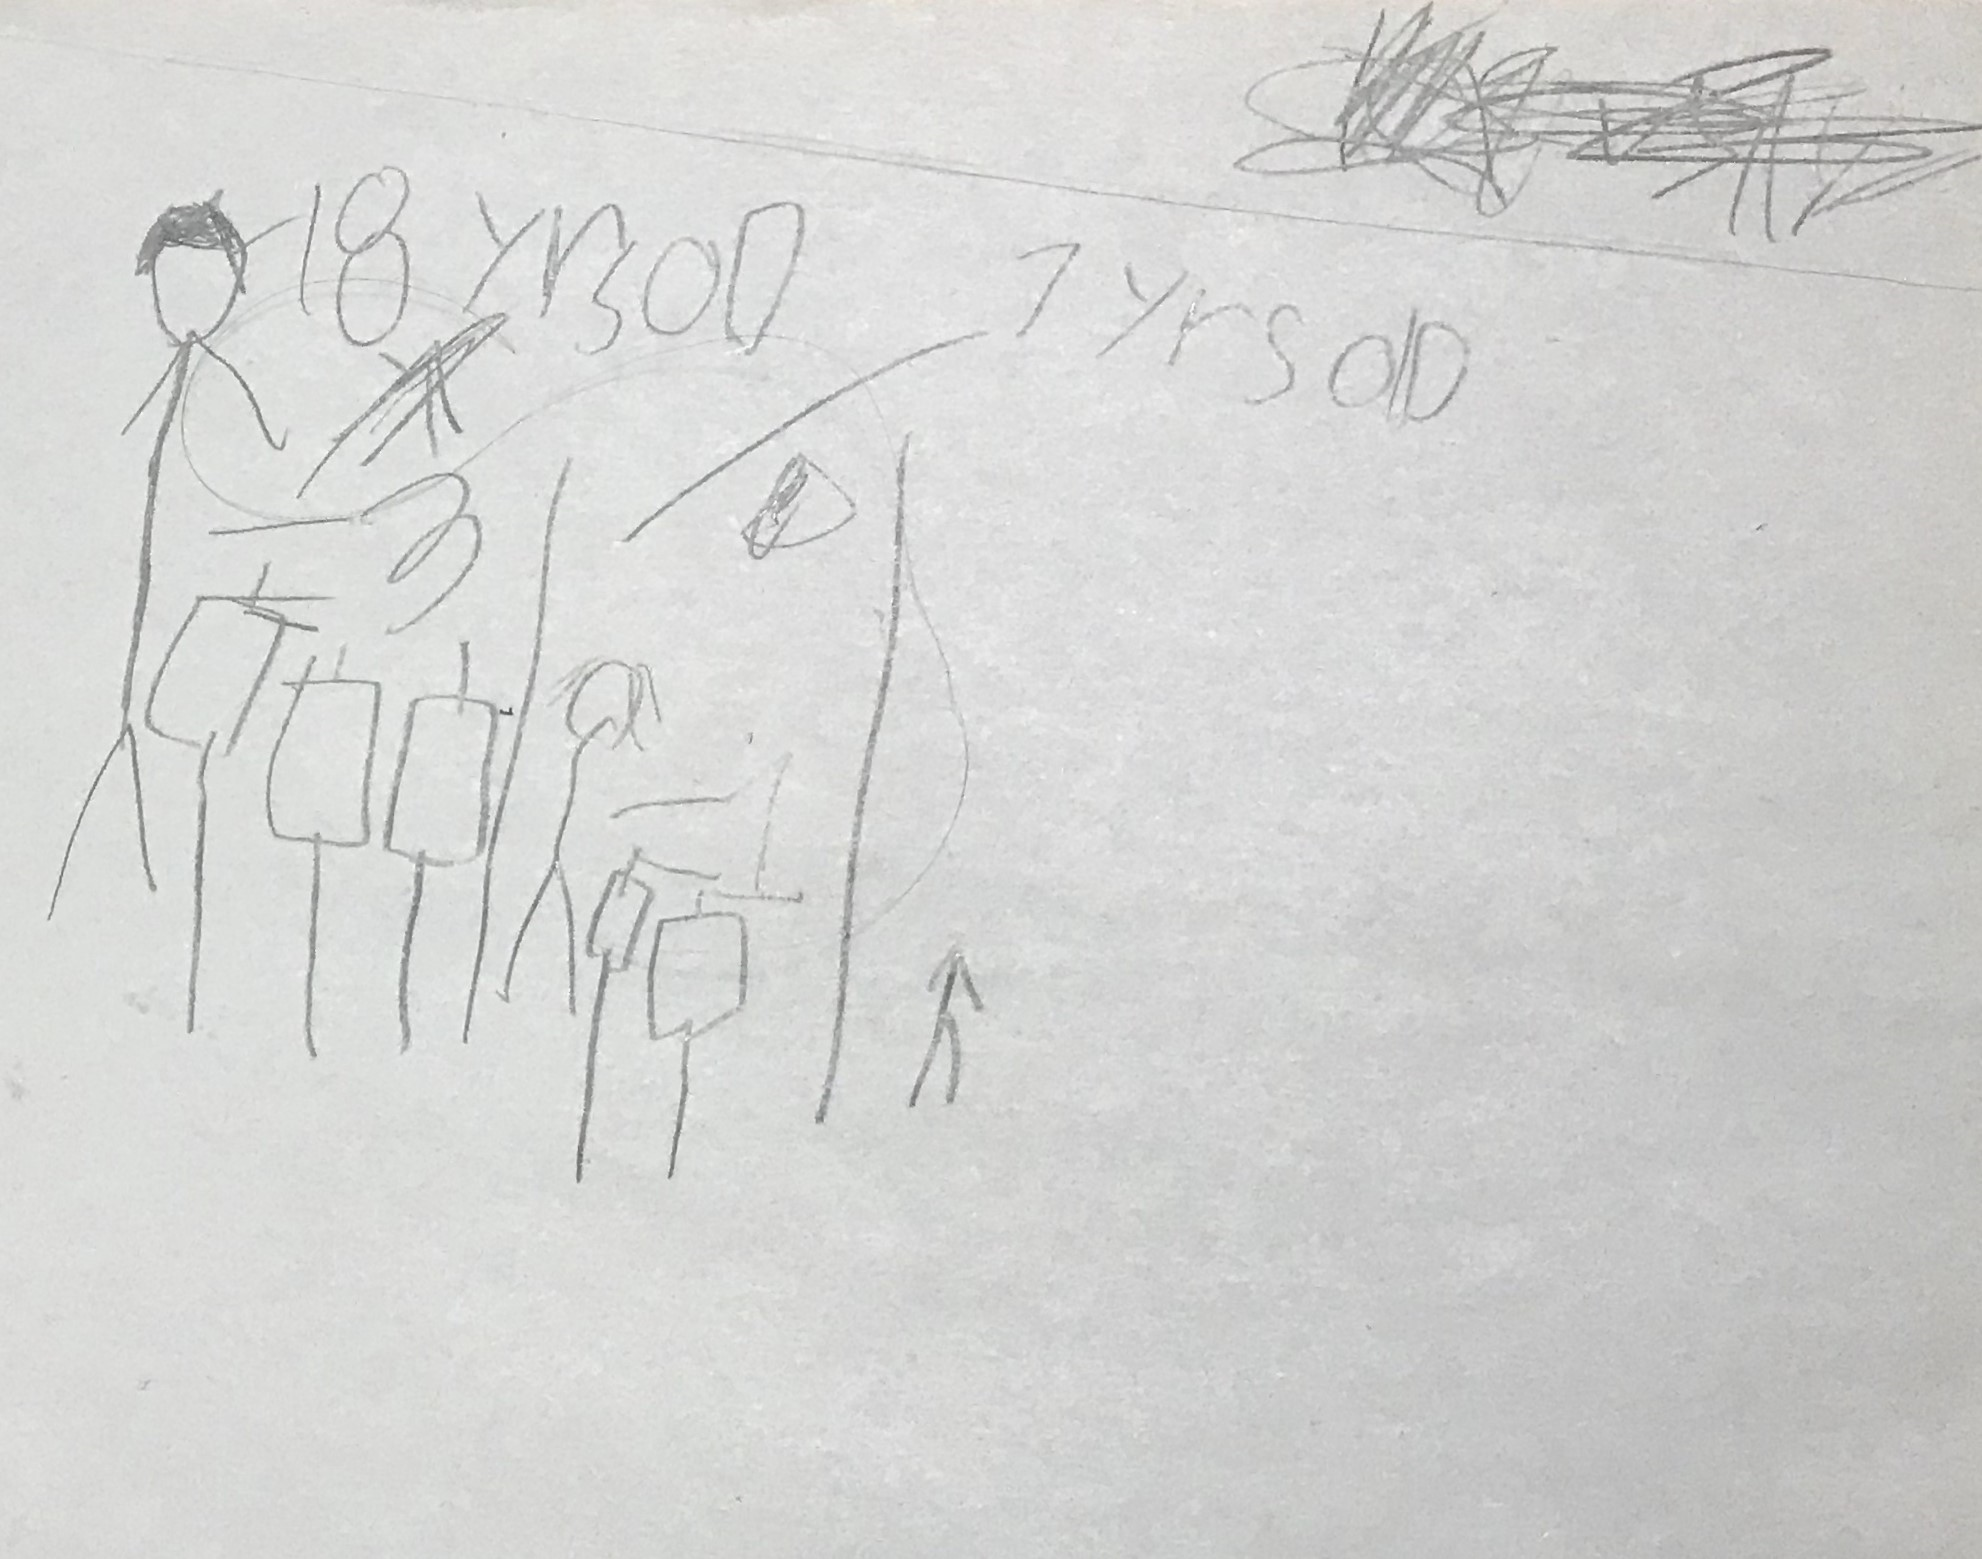 18 yrs oD
7 yrs olD